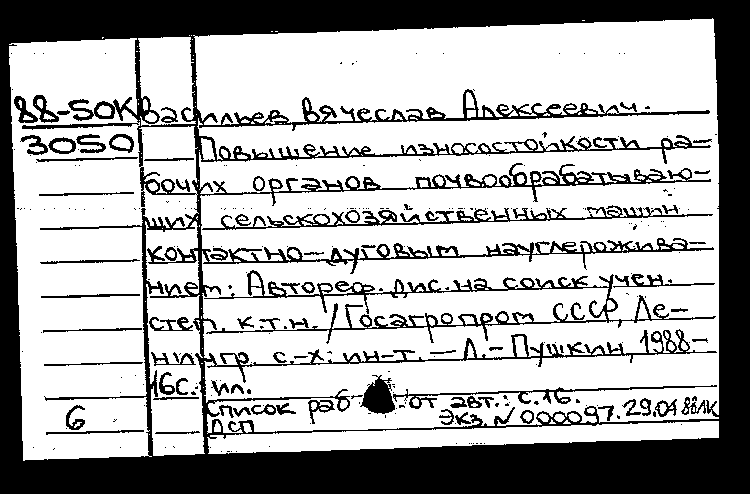 88-50К Васильев, Вячеслав Алексеевич.
3050 Повышение износостойкости ра-
бочих органов почвообрабатываю-
щих сельскохозяйственных машин
контактно-дуговым науглерожива-
нием: Автореф. дис. на соиск. учен.
степ. к.т.н. / Госагропром СССР, Ле-
нингр. с.-х. ин-т. — Л.-Пушкин, 1988.-
16с.: ил.
6 Список раб от авт.: с.16.
ДСП Экз. № 000097. 29.04 88 ЛК